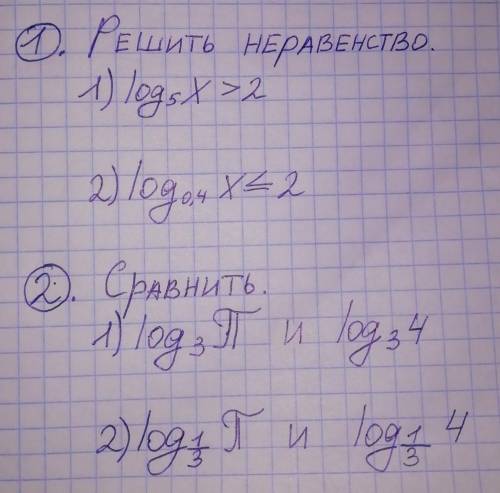 1. Решить неравенство.
1) log₅x > 2
2) log₀,₄ x ≤ 2
2. Сравнить.
1) log₃π и log₃4
2) log_{1/3} π и log_{1/3} 4